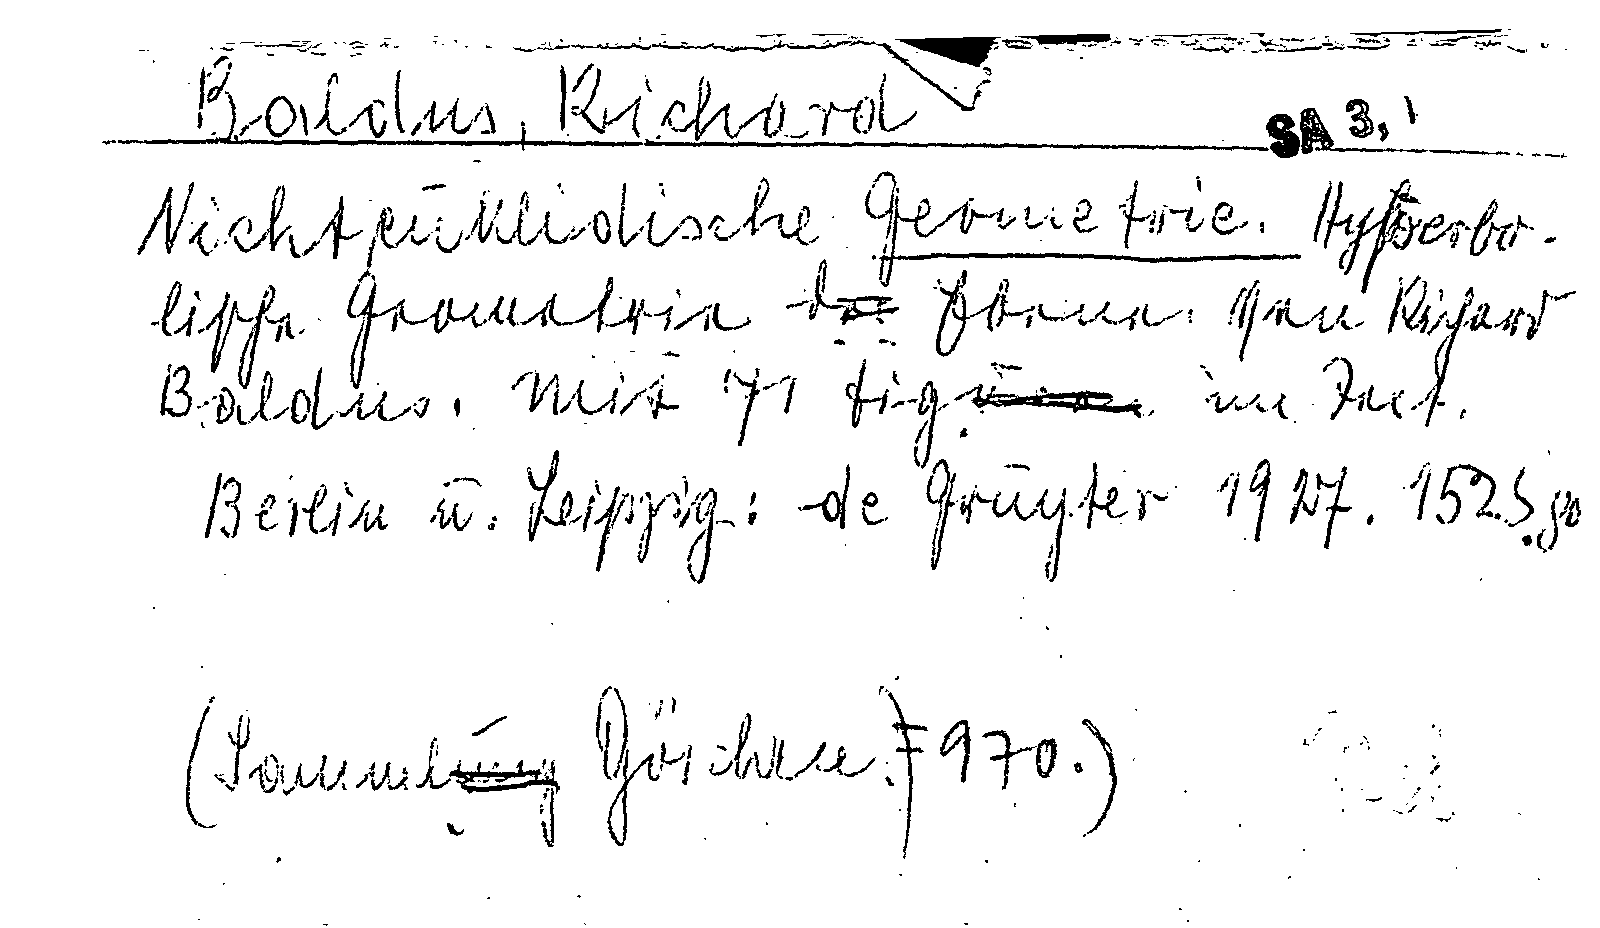 Baldus, Richard
SA 3, 1
Nichteuklidische Geometrie. Hyperbo-
lische Geometrie der Ebene. Von Richard
Baldus. Mit 71 Figuren im Text.
Berlin u. Leipzig: de Gruyter 1927. 152 S. 8o
(Sammlung Göschen. 970.)